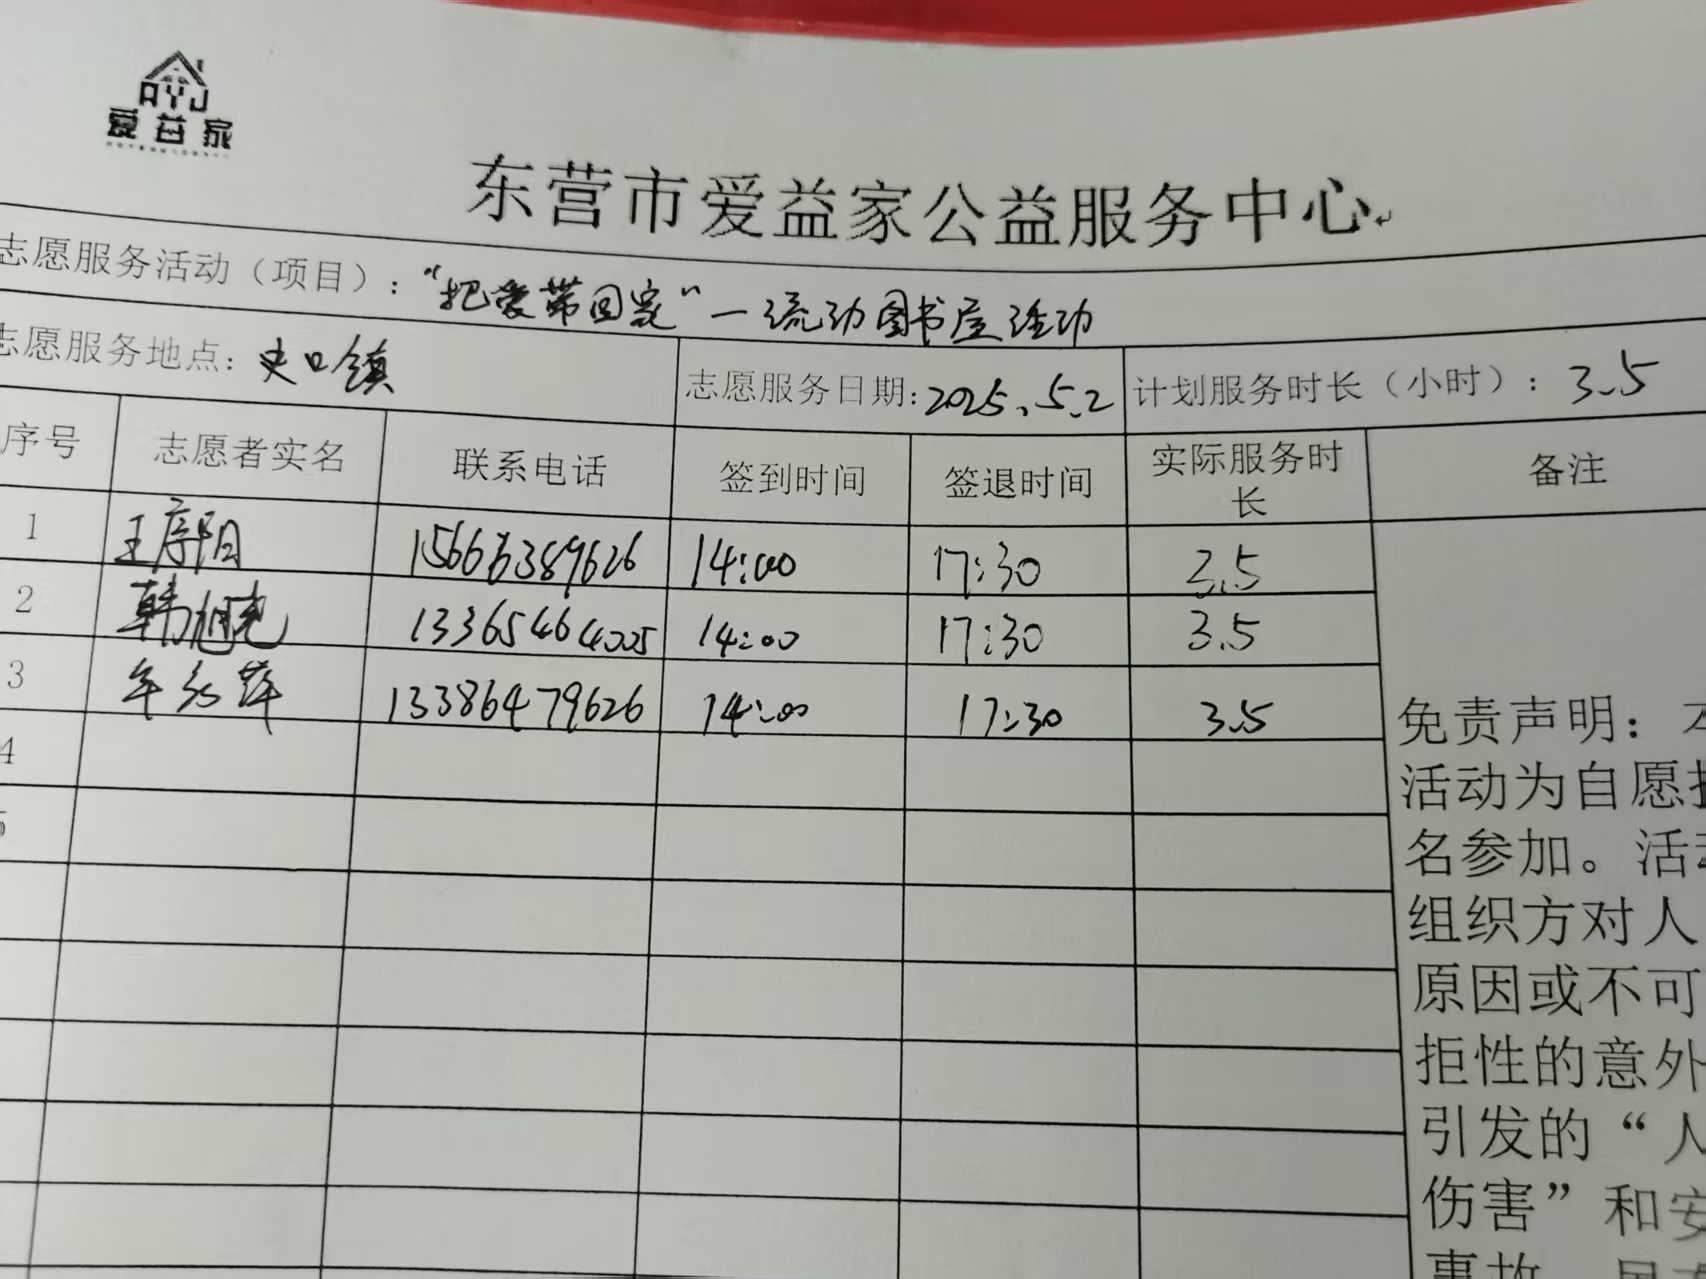 AYJ
爱益家
东营市爱益家公益服务中心
志愿服务活动（项目）：“把爱带回家”一流动图书屋活动
志愿服务地点：史口镇 志愿服务日期：2025.5.2 计划服务时长（小时）：3.5
序号 志愿者实名 联系电话 签到时间 签退时间 实际服务时长 备注
1 王序阳 15666389626 14:00 17:30 3.5
2 韩旭尧 13365464005 14:00 17:30 3.5
3 牟 萍 13386479626 14:00 17:30 3.5
4
5
免责声明：本
活动为自愿报
名参加。活动
组织方对人
原因或不可
拒性的意外
引发的“人
伤害”和安
事故